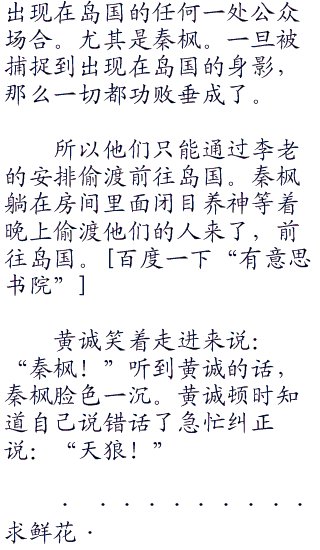 出现在岛国的任何一处公众
场合。尤其是秦枫。一旦被
捕捉到出现在岛国的身影，
那么一切都功败垂成了。
所以他们只能通过李老
的安排偷渡前往岛国。秦枫
躺在房间里面闭目养神等着
晚上偷渡他们的人来了，前
往岛国。[百度一下“有意思
书院”]
黄诚笑着走进来说：
“秦枫！”听到黄诚的话，
秦枫脸色一沉。黄诚顿时知
道自己说错话了急忙纠正
说：“天狼！”
．．．．．．．．．．
求鲜花·